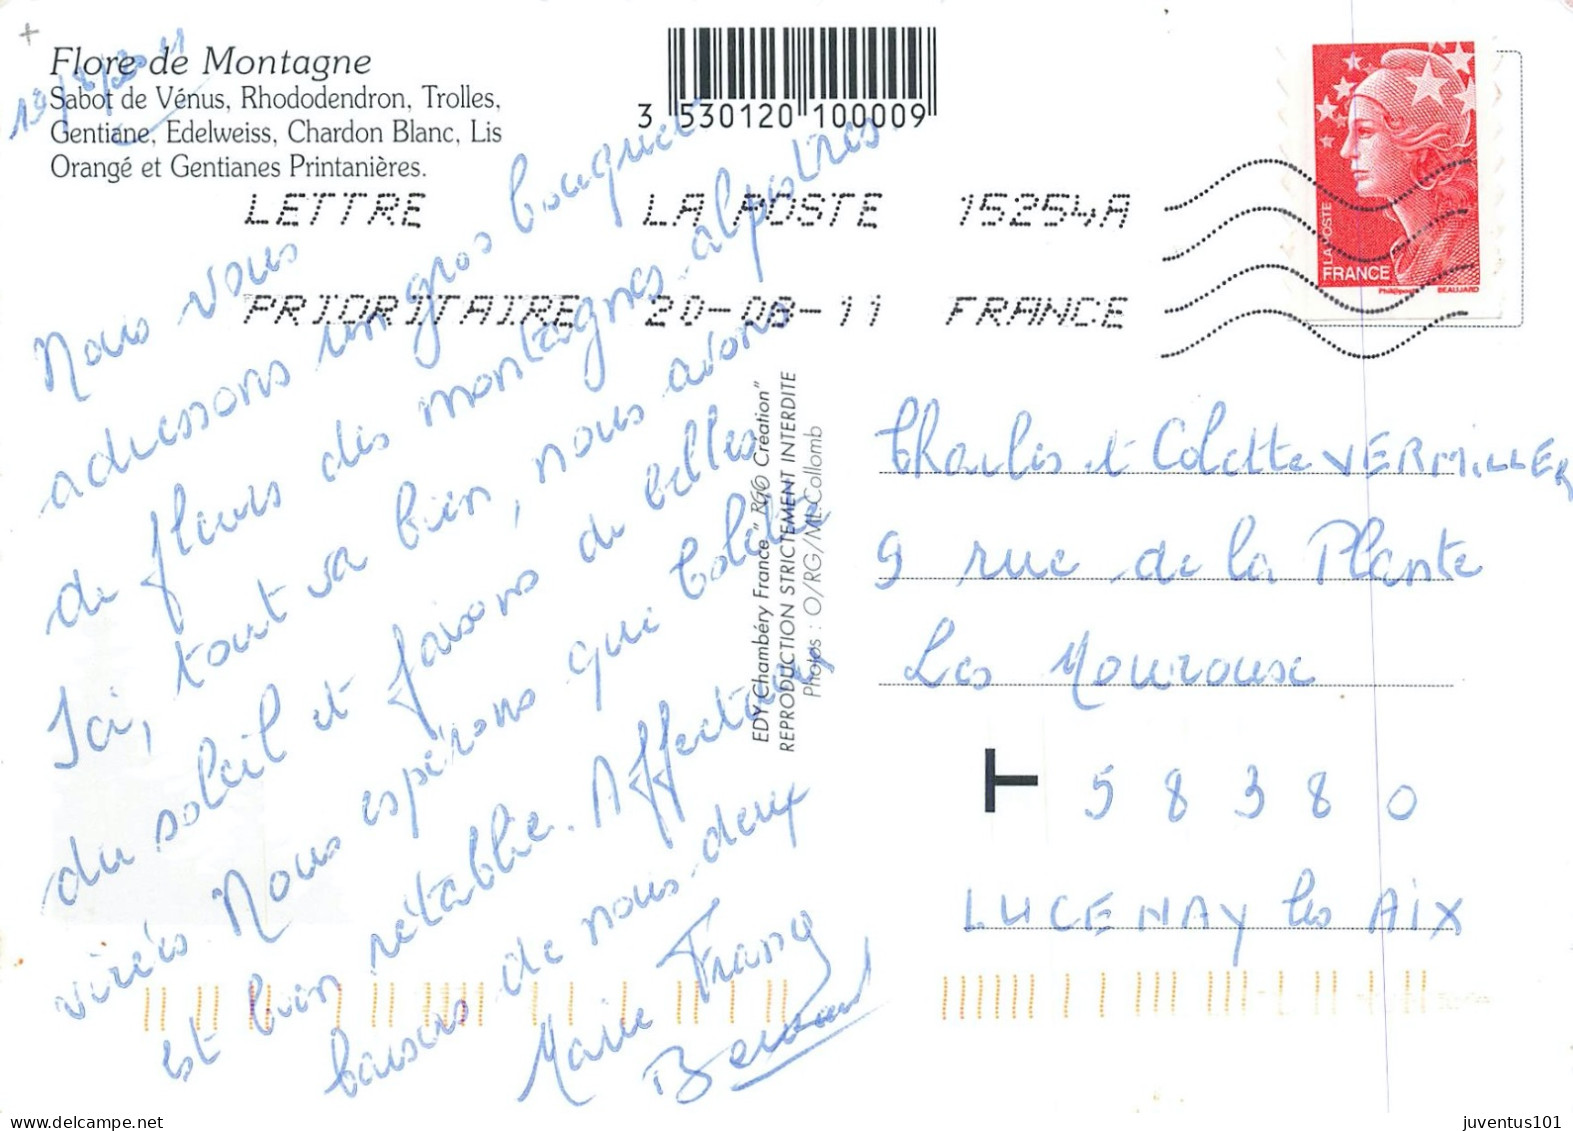 19/8/2011
Flore de Montagne
Sabot de Vénus, Rhododendron, Trolles,
Gentiane, Edelweiss, Chardon Blanc, Lis
Orangé et Gentianes Printanières.
3 530120 100009
LETTRE LA POSTE 15254A
PRIORITAIRE 20-08-11 FRANCE
LA POSTE
FRANCE
BEAUJARD
Nous vous
adressons un gros bouquet
de fleurs des montagnes alpestres
Ici, tout va bien, nous avons
du soleil et faisons de belles
virées Nous espérons que Colette
est bien rétablie. Affectueux
baisers de nous deux
Marie France
Bernard
EDY Chambéry France " RGG Création"
REPRODUCTION STRICTEMENT INTERDITE
Photos : O/RG/ML.Collomb
Charles et Colette VERMILLER
9 rue de la Plante
Les Mourouse
T 58380
LUCENAY les AIX
juventus101